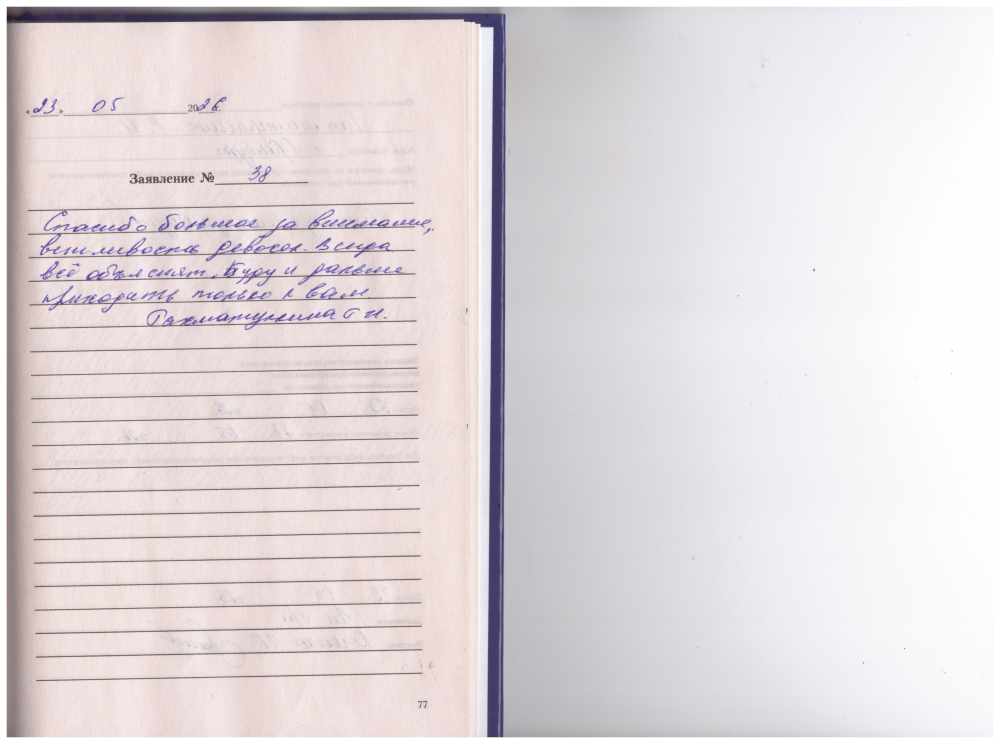 "23" 05 2026.
Заявление № 38
Спасибо большое за внимание,
вежливость девочек. Всегда
всё объяснят. Буду и дальше
приходить только к вам.
Рахматуллина Г Н.
77